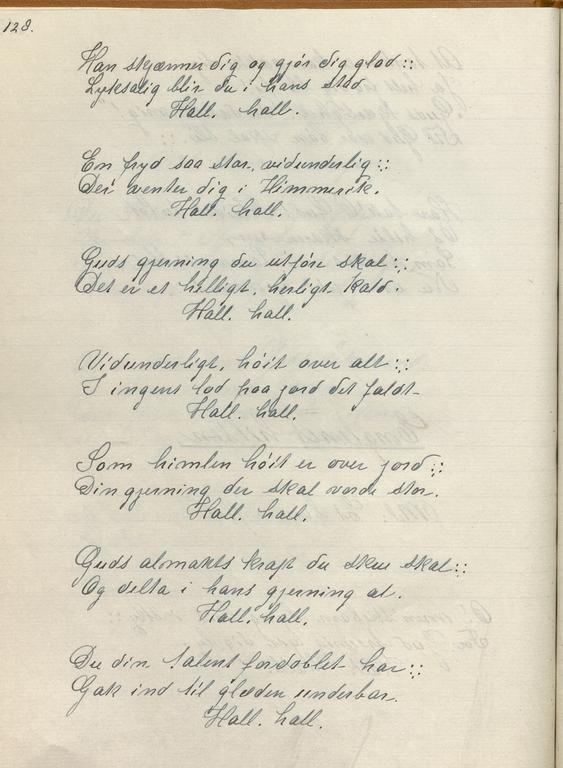 128.
Han skjønner dig og gjør dig glad :,:
Lyksalig blir du i hans stad
Hall. hall.
En fryd saa stor, vidunderlig :,:
Der venter dig i Himmerik.
Hall. hall.
Guds gjerning du utføre skal :,:
Det er et helligt, herligt kald.
Hall. hall.
Vidunderligt, høit over alt :,:
I ingens lod paa jord det faldt
Hall. hall.
Som himlen høit er over jord :,:
Din gjerning der skal vorde stor.
Hall. hall.
Guds almakts kraft du skue skal :,:
Og delta i hans gjerning al.
Hall. hall.
Du din talent fordoblet har :,:
Gak ind til glæden underbar.
Hall. hall.